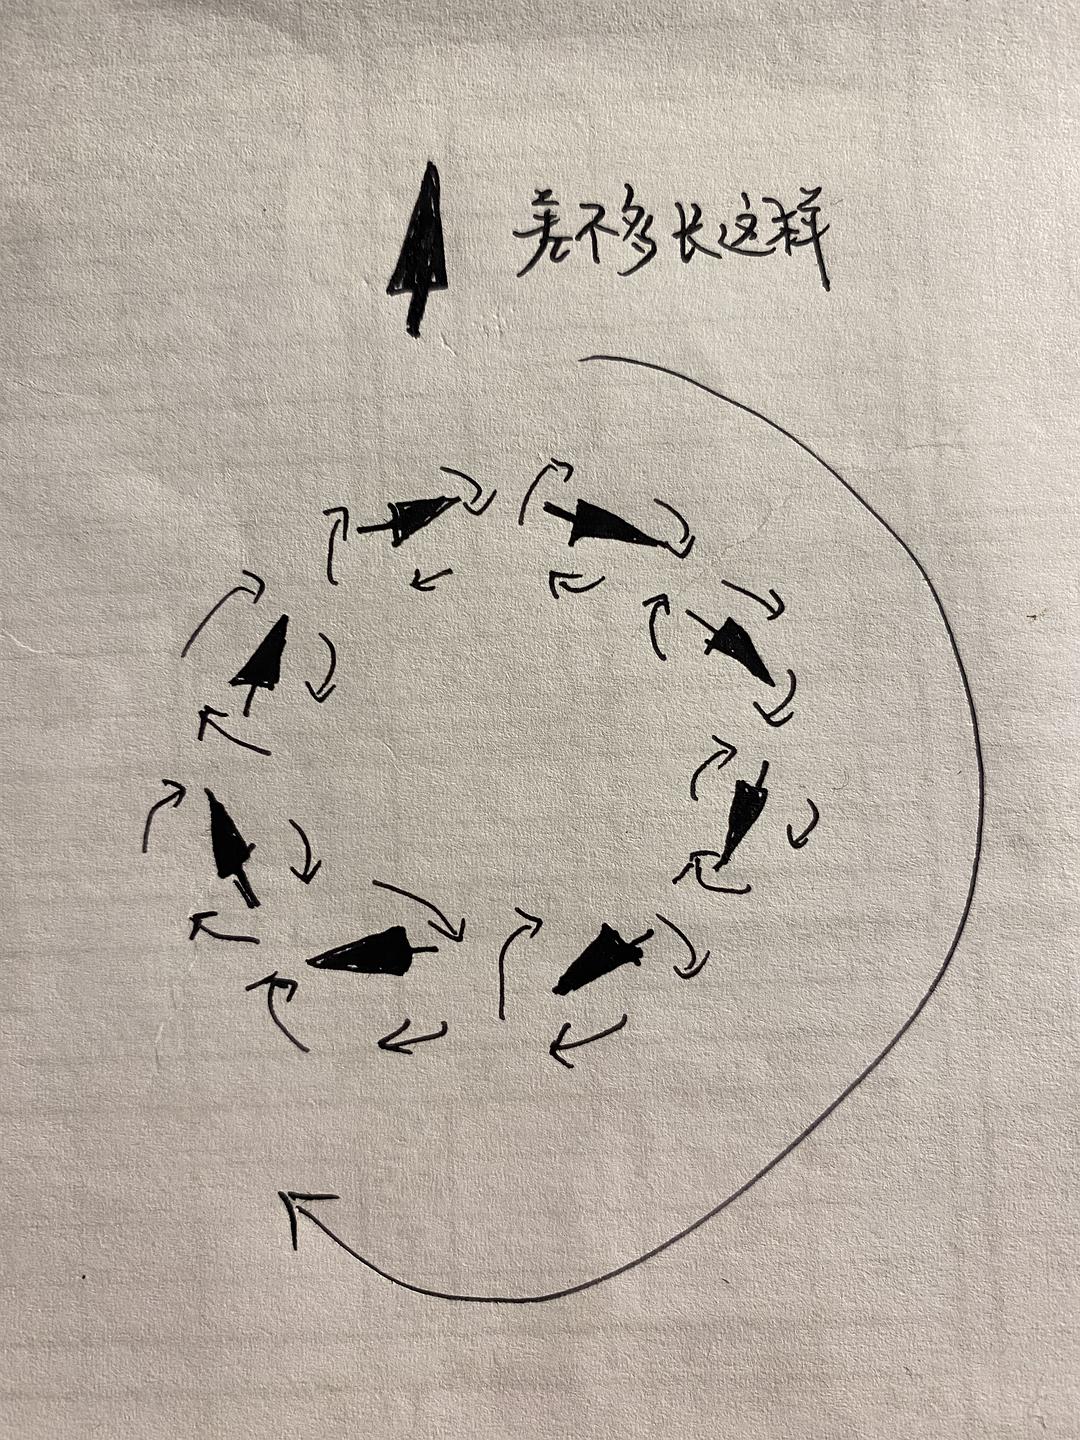 差不多长这样